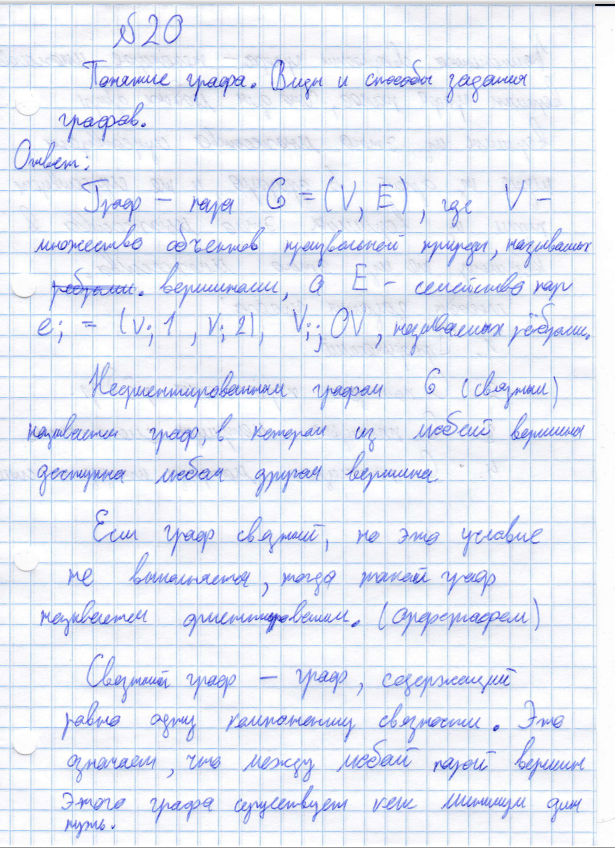 №20
Понятие графа. Виды и способы задания
графов.
Ответ:
Граф – пара G = (V, E), где V –
множество объектов произвольной природы, называемых
ребрами. вершинами, а E – семейство пар
ei = (vi1, vi2), Vij OV, называемых рёбрами.
Неориентированным графом G (связный)
называется граф, в котором из любой вершины
доступна любая другая вершина
Если граф связный, но это условие
не выполняется, тогда такой граф
называется ориентированным. (орфографом)
Связный граф – граф, содержащий
ровно одну компоненту связности. Это
означает, что между любой парой вершин
этого графа существует как минимум один
путь.